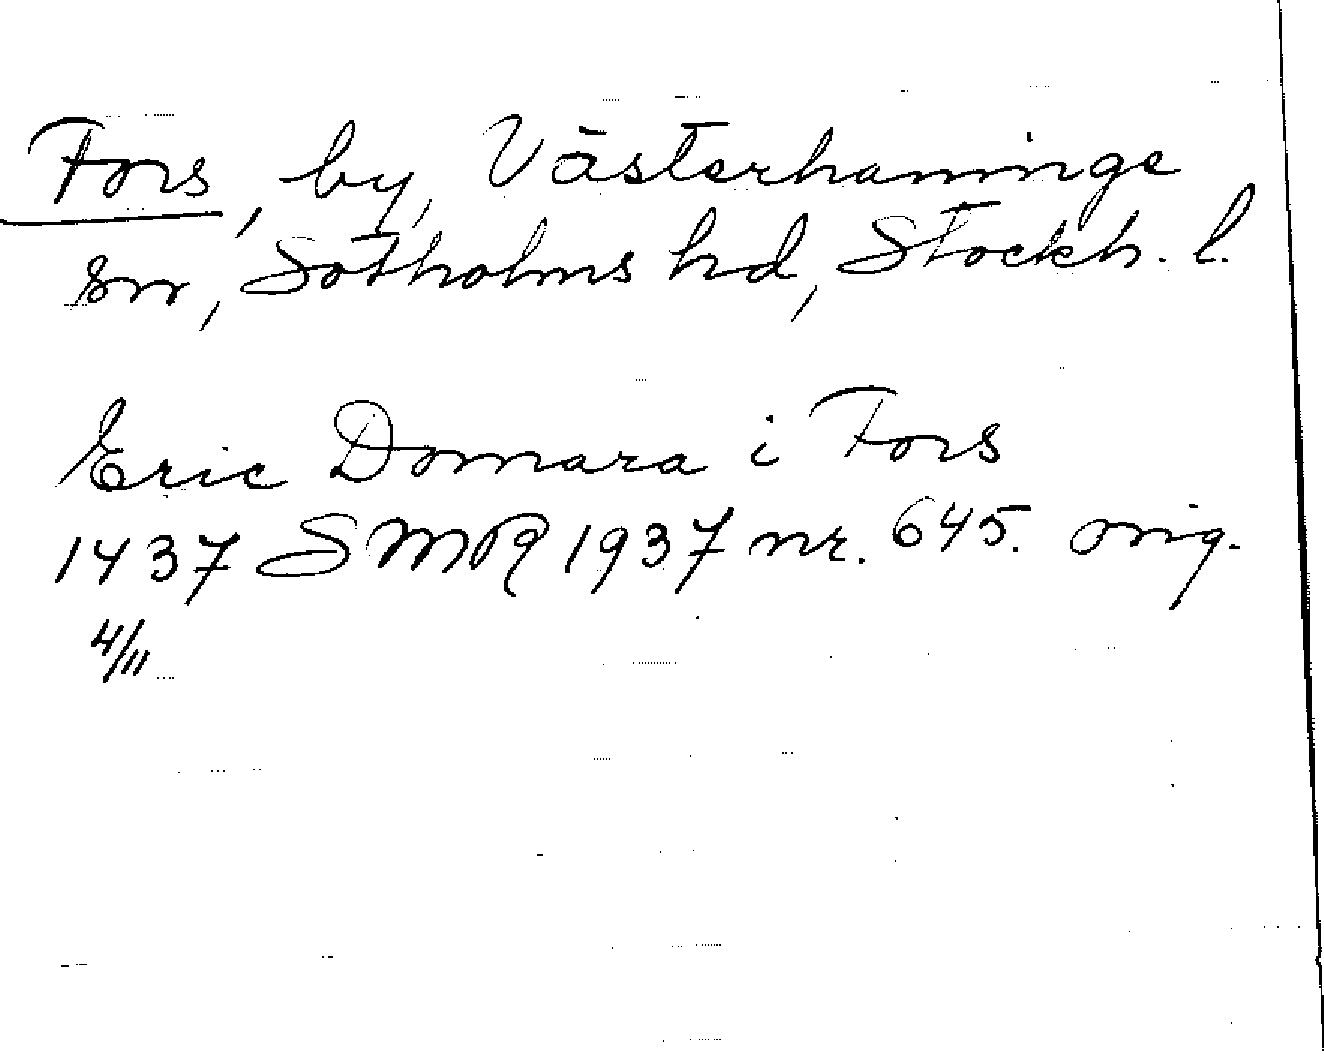 Fors, by, Västerhaninge
sn, Sotholms hd, Stockh. l.
Eric Domara i Fors
1437 SMR 1937 nr. 645. orig.
4/11